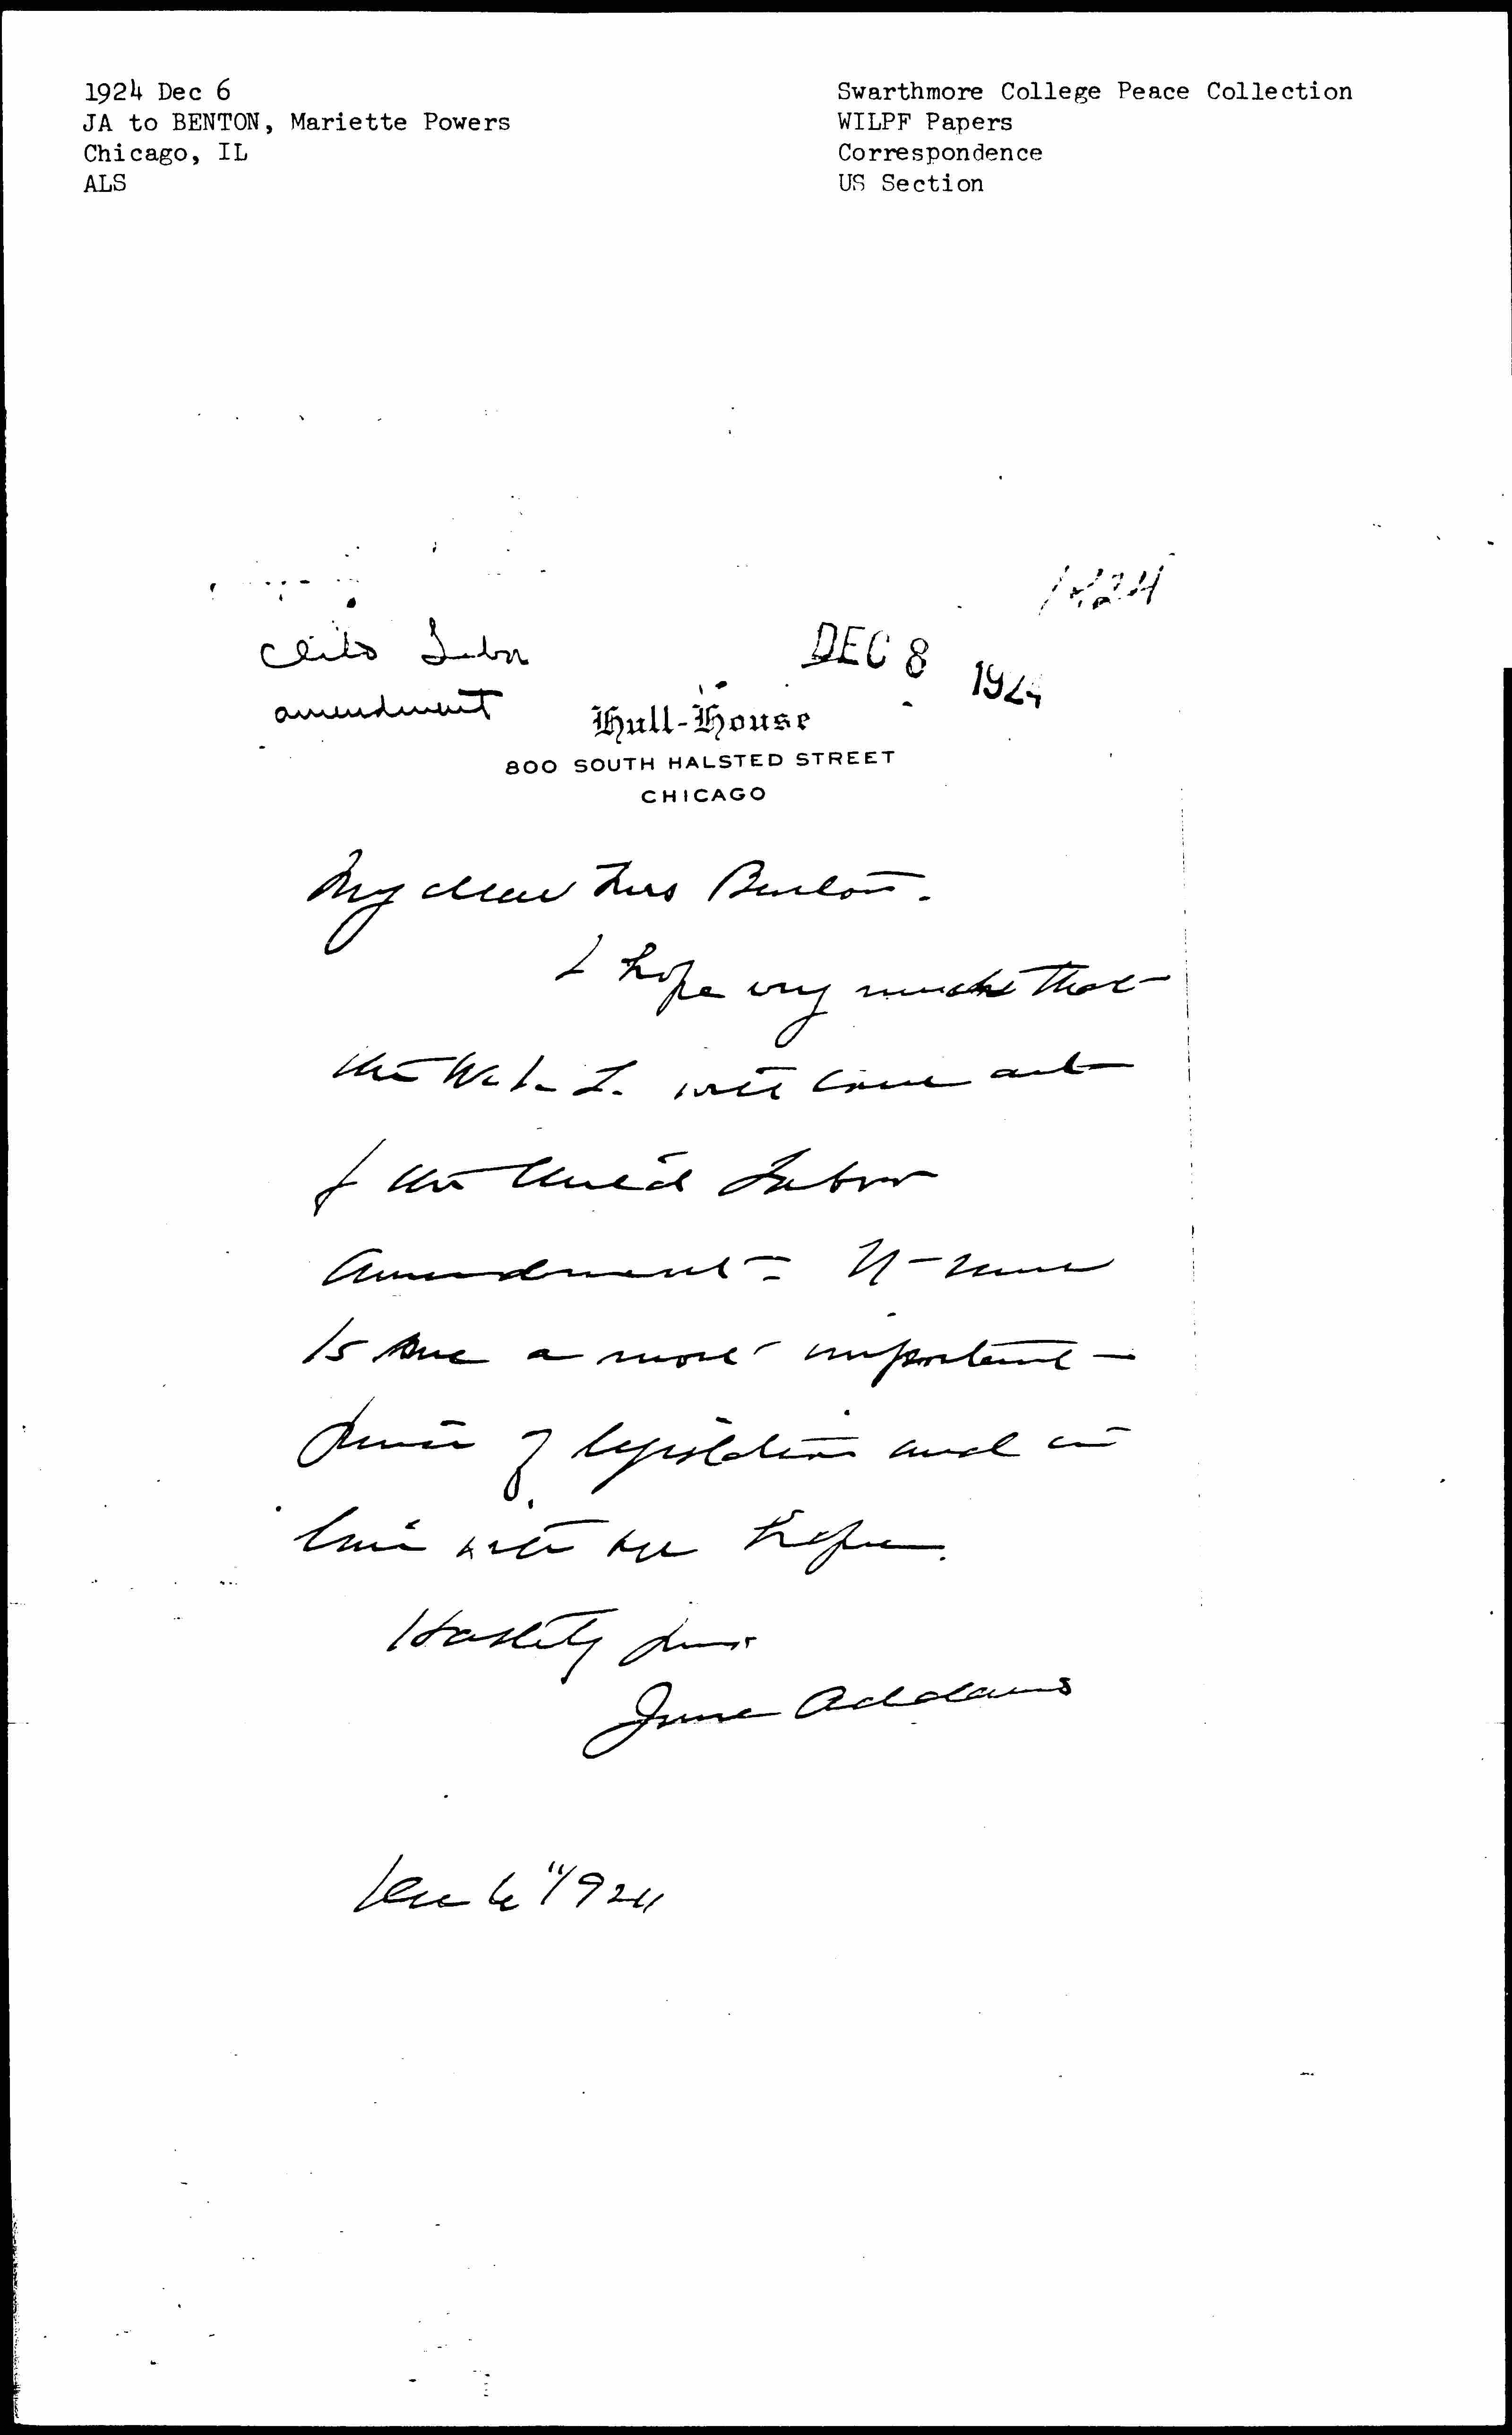 1924 Dec 6
JA to BENTON, Mariette Powers
Chicago, IL
ALS
Swarthmore College Peace Collection
WILPF Papers
Correspondence
US Section
1924
Child Labor
amendment
DEC 8 1924
Hull-House
800 SOUTH HALSTED STREET
CHICAGO
My dear Mrs Benton.
I hope very much that
the W.I.L. will come out
f the Child Labor
Amendment
is a most important
piece of legislation and in
line with
Hastily yours
Jane Addams
Dec 6" 1924